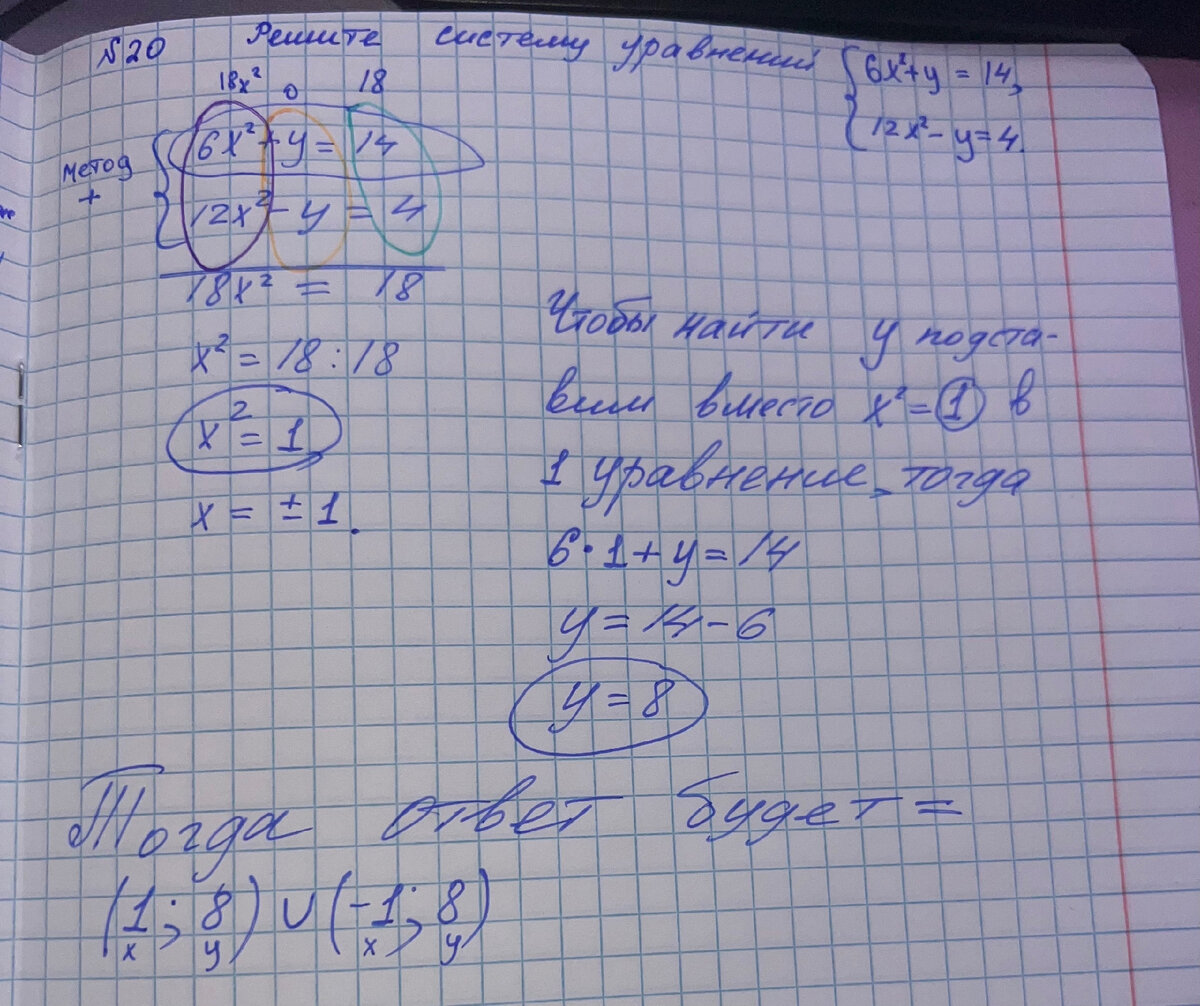 №20 Решите систему уравнений { 6x²+y = 14,
12x²- y = 4.
18x² 0 18
метод + { 6x² + y = 14
12x² - y = 4
18x² = 18
x² = 18 : 18
x² = 1
x = ± 1.
Чтобы найти y подста-
вим вместо x² = 1 в
1 уравнение, тогда
6 · 1 + y = 14
y = 14 - 6
y = 8
Тогда ответ будет =
(1; 8) ∪ (-1; 8)
x y x y